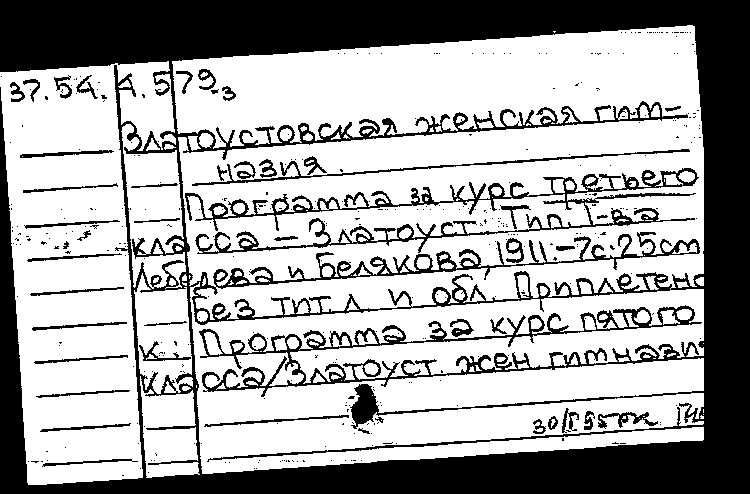 37.54.4.579з
Златоустовская женская гим=
назия.
Программа за курс третьего
класса — Златоуст: Тип. Т-ва
Лебедева и Белякова, 1911.-7с; 25cm
Без тит.л. и обл. Приплетено
к: Программа за курс пятого
класса/Златоуст. жен. гимназия